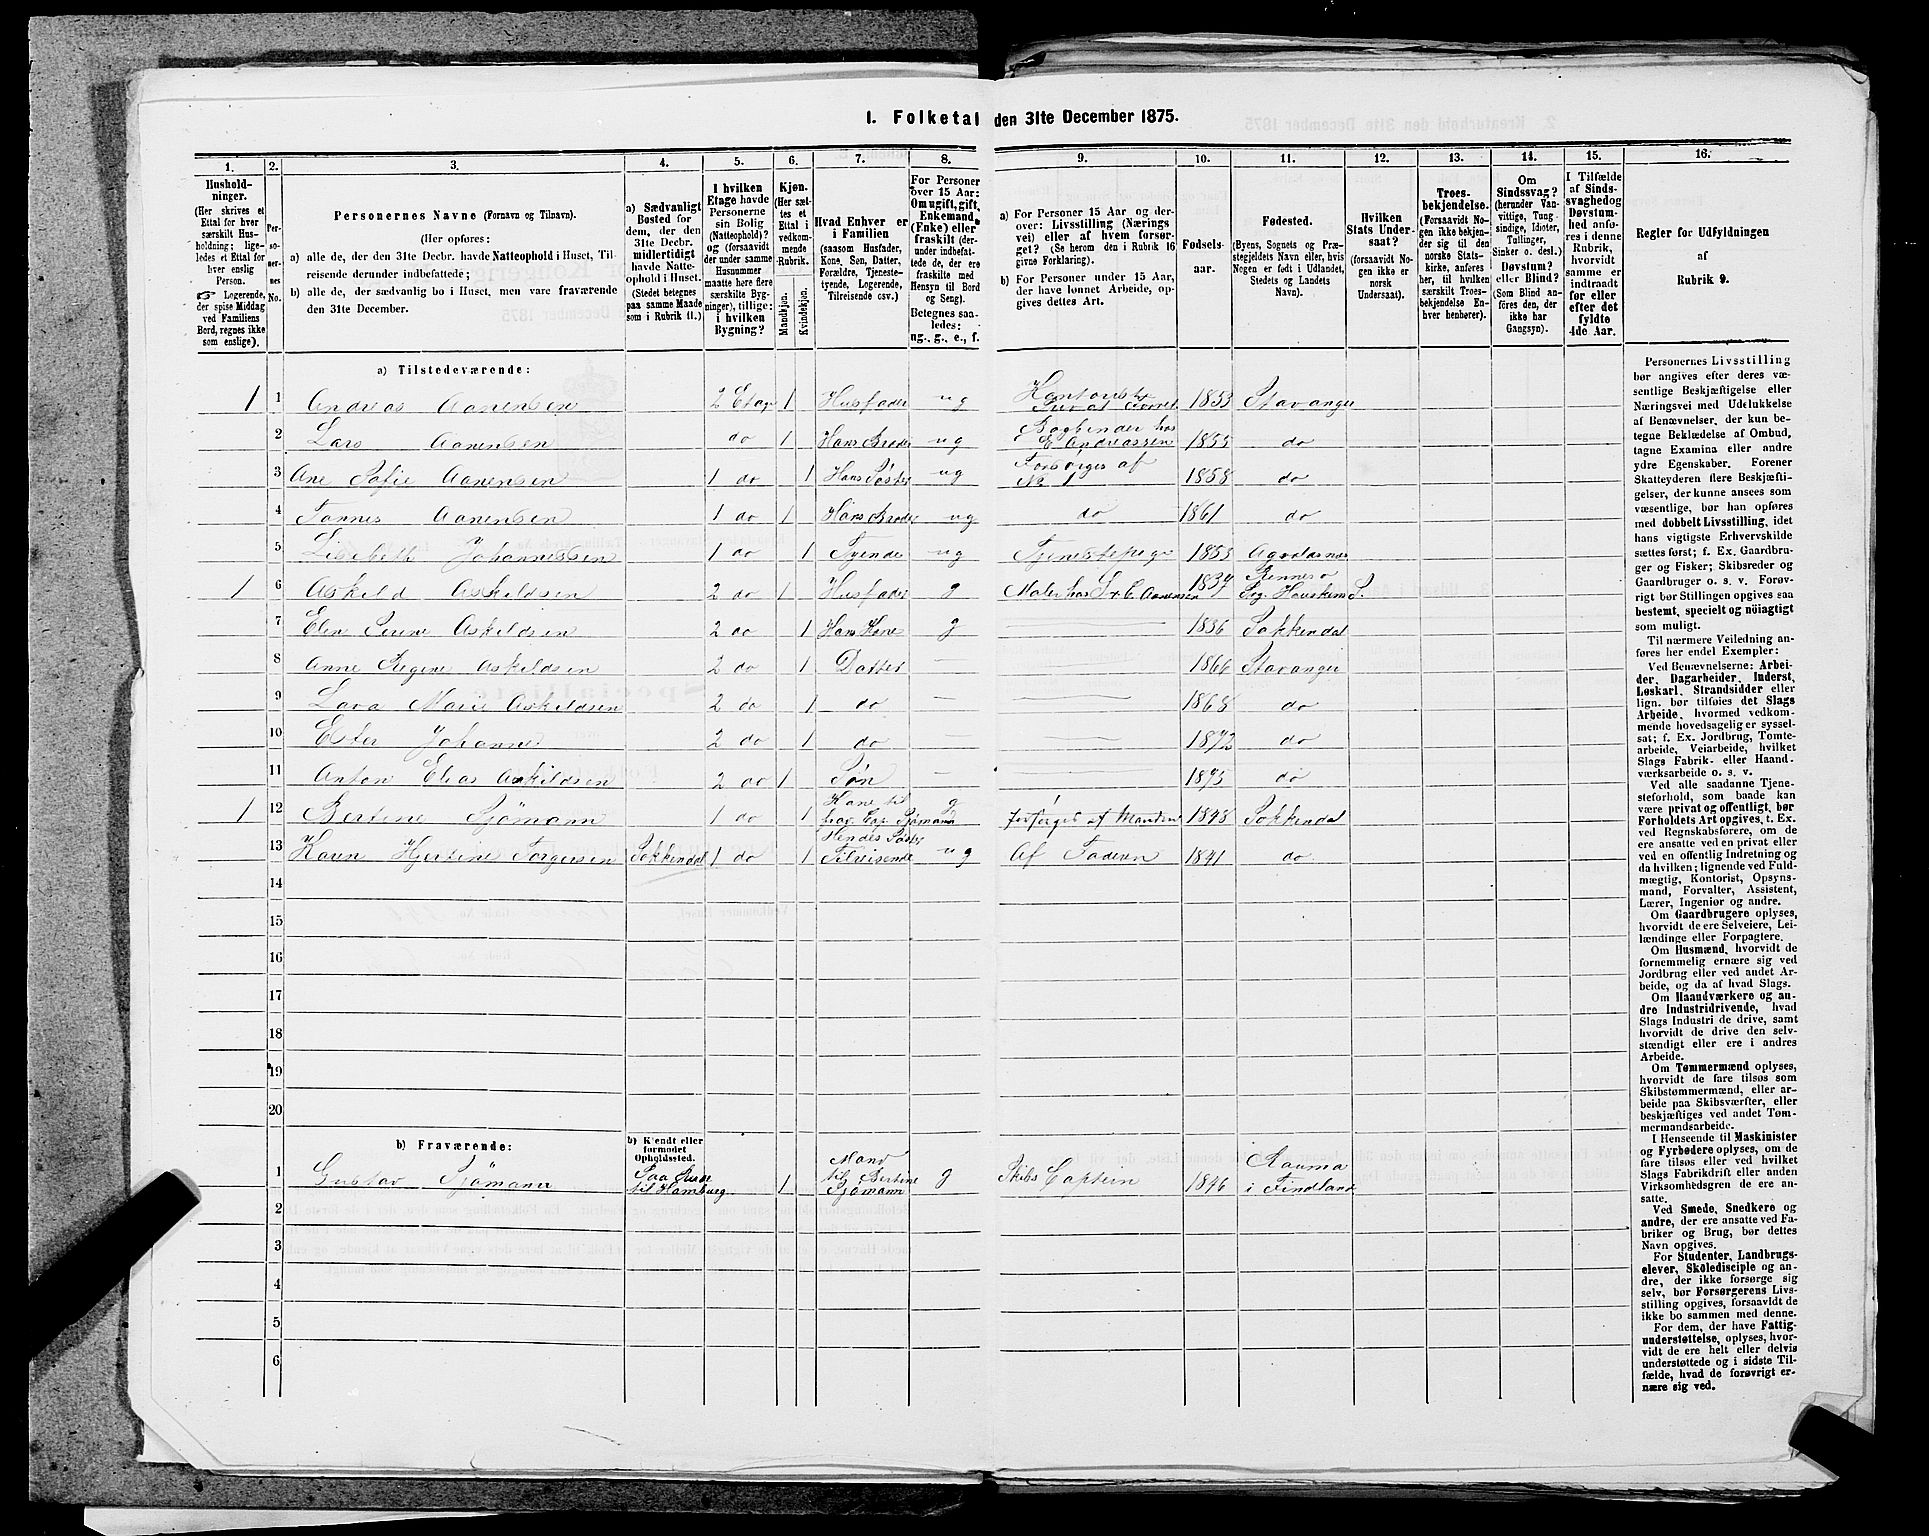 1. Folketal den 31te December 1875.
1. 2. 3. 4. 5. 6. 7. 8. 9. 10. 11. 12. 13. 14. 15. 16.
Husholdninger. (Her skrives et Ettal for hver særskilt Husholdning; ligeledes et Ettal for hver enslig Person. ☞ Logerende, der spise Middag ved Familiens Bord, regnes ikke som enslige).
Personernes No.
Personernes Navne (Fornavn og Tilnavn).
(Her opføres:
a) alle de, der den 31te Decbr. havde Natteophold i Huset, Tilreisende derunder indbefattede;
b) alle de, der sædvanlig bo i Huset, men vare fraværende den 31te December.
a) Sædvanligt Bosted for dem, der den 31te Decbr. midlertidigt havde Natteophold i Huset. (Stedet betegnes paa samme Maade som i Rubrik 11.)
I hvilken Etage havde Personerne sin Bolig (Natteophold)? og (forsaavidt der under samme Husnummer maatte høre flere særskilte Bygninger), tillige: i hvilken Bygning?
Kjøn. (Her sættes et Ettal i vedkommende Rubrik.
Mandkjøn. Kvindekjøn.
Hvad Enhver er i Familien (saasom Husfader, Kone, Søn, Datter, Forældre, Tjenestetyende, Logerende, Tilreisende osv.)
For Personer over 15 Aar: Om ugift, gift, Enkemand (Enke) eller fraskilt (derunder indbefattede de, der ere fraskilte med Hensyn til Bord og Seng). Betegnes saaledes: ug., g., e., f.
a) For Personer 15 Aar og derover: Livsstilling (Næringsvei) eller af hvem forsørget? (Se herom den i Rubrik 16 givne Forklaring).
b) For Personer under 15 Aar, der have lønnet Arbeide, opgives dettes Art.
Fødselsaar.
Fødested. (Byens, Sognets og Præstegjeldets Navn eller, hvis Nogen er født i Udlandet, Stedets og Landets Navn).
Hvilken Stats Undersaat? (forsaavidt Nogen ikke er norsk Undersaat).
Troesbekjendelse. (Forsaavidt Nogen ikke bekjender sig til den norske Statskirke, anføres her, til hvilken særskilt Troesbekjendelse Enhver henhører).
Om Sindssvag? (herunder Vanvittige, Tungsindige, Idioter, Tullinger, Sinker o. desl.) Døvstum? eller Blind? (Som Blind anføres den, der ikke har Gangsyn).
I Tilfælde af Sindssvaghed og Døvstumhed anføres i denne Rubrik, hvorvidt samme er indtraadt før eller efter det fyldte 4de Aar.
Regler for Udfyldningen af Rubrik 9.
a) Tilstedeværende:
1 1 Andreas Aanensen 2 Etage 1 Husfader ug Kontorist 1853 Stavanger
2 Lars Aanensen do 1 Hans Broder ug Bogbinder hos E Andreassen 1855 do
3 Ane Sofie Aanensen 1 do 1 Hans Søster ug Forsørges af No 1 1858 do
4 Tønnes Aanensen 1 do 1 Hans Broder ug do 1861 do
5 Lisebeth Johannessen 1 do 1 Tyende ug Tjenestepige 1855
1 6 Askild Askildsen 2 do 1 Husfader g Maler hos S. &amp; C. Aanensen 1837 Rennesø
7 Elen Serene Askildsen 2 do 1 Hans Kone g 1836 Sokkendal
8 Anne Regine Askildsen 2 do 1 Datter — 1866 Stavanger
9 Lava Marie Askildsen 2 do 1 do — 1868 do
10 Ester Johanne 2 do 1 do 1873 do
11 Anton Elias Askildsen 2 do 1 Søn — 1875 do
1 12 Bertine Sjömann 1 do 1 Kone til Sjömann g forsørges af Manden 1848 Sokkendal
13 Karen Hjertine Torgersen Sokkendal 1 do 1 Hendes Søster Tilreisende ug Af Faderen 1841 do
14
15
16
17
18
19
20
b) Fraværende:
b) Kjendt eller formodet Opholdssted.
1 Gustav Sjömann Paa Reise til Hamburg 1 Mand til Bertine Sjömann g Skibs Captein 1846 Rauma i Findland
2
3
4
5
6
Personernes Livsstilling
bør angives efter deres væsentlige
Beskjæftigelse eller
Næringsvei med Udelukkelse
af Benævnelser, der kun betegne
Beklædelse af Ombud,
tagne Examina eller andre
ydre Egenskaber. Forener
Skatteyderen flere Beskjæftigelser,
der kunne ansees som
væsentlige, bør han opføres
med dobbelt Livsstilling, idet
hans vigtigste Erhvervskilde
sættes først; f. Ex. Gaardbruger
og Fisker; Skibsreder og
Gaardbruger o. s. v. Forøvrigt
bør Stillingen opgives saa
bestemt, specielt og nöiagtigt
som muligt.
Til nærmere Veiledning anføres
her endel Exempler:
Ved Benævnelserne: Arbeider,
Dagarbeider, Inderst,
Løskarl, Strandsidder eller
lign. bør tilføies det Slags
Arbeide, hvormed vedkommende
hovedsagelig er sysselsat;
f. Ex. Jordbrug, Tomtearbeide,
Veiarbeide, hvilket
Slags Fabrik- eller Haandværksarbeide
o. s. v.
Ved alle saadanne Tjenesteforhold,
som baade kan
være privat og offentligt, bør
Forholdets Art opgives, t. Ex.
ved Regnskabsførere, om de
ere ansatte ved en privat eller
ved en offentlig Indretning og
da hvilken; lignende ved Fuldmægtig,
Kontorist, Opsynsmand,
Forvalter, Assistent,
Lærer, Ingeniør og andre.
Om Gaardbrugere oplyses,
hvorvidt de ere Selveiere, Leilændinge
eller Forpagtere.
Om Husmænd, hvorvidt de
fornemmelig ernære sig ved
Jordbrug eller ved andet Arbeide,
og da af hvad Slags.
Om Haandværkere og andre
Industridrivende, hvad
Slags Industri de drive, samt
hvorvidt de drive den selvstændigt
eller ere i andres
Arbeide.
Om Tømmermænd oplyses,
hvorvidt de fare tilsøs som
Skibstømmermænd, eller arbeide
paa Skibsværfter, eller
beskjæftiges ved andet Tømmermandsarbeide.
I Henseende til Maskinister
og Fyrbødere oplyses, om de
fare tilsøs eller ved hvilket
Slags Fabrikdrift eller anden
Virksomhedsgren de ere ansatte.
Ved Smede, Snedkere og
andre, der ere ansatte ved Fabriker
og Brug, bør dettes
Navn opgives.
For Studenter, Landbrugselever,
Skoledisciple og andre,
der ikke forsørge sig
selv, bør Forsørgerens Livsstilling
opgives, forsaavidt de
ikke bo sammen med denne.
For dem, der have Fattigunderstøttelse,
oplyses, hvorvidt
de ere helt eller delvis
understøttede og i sidste Tilfælde,
hvad de forøvrigt ernære
sig ved.